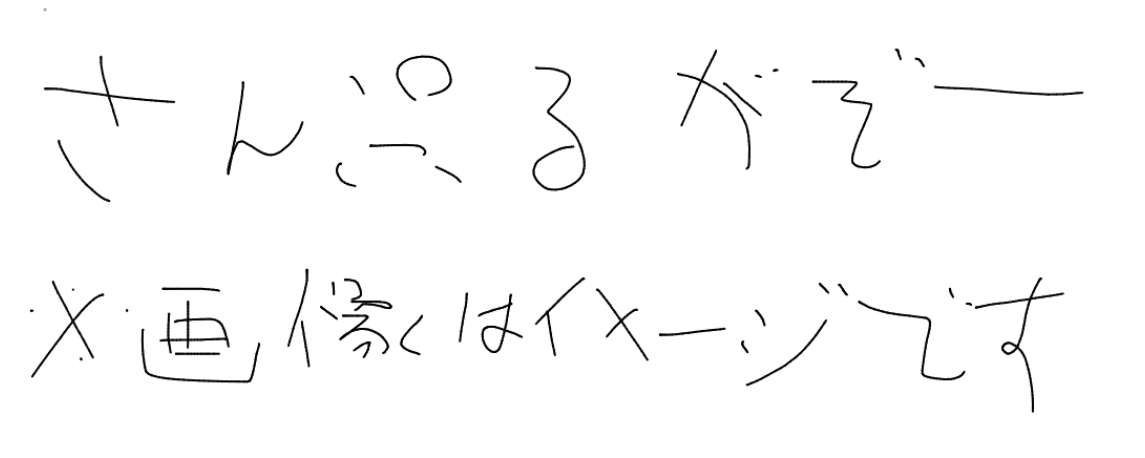 さんぷるがぞー
※画像はイメージです